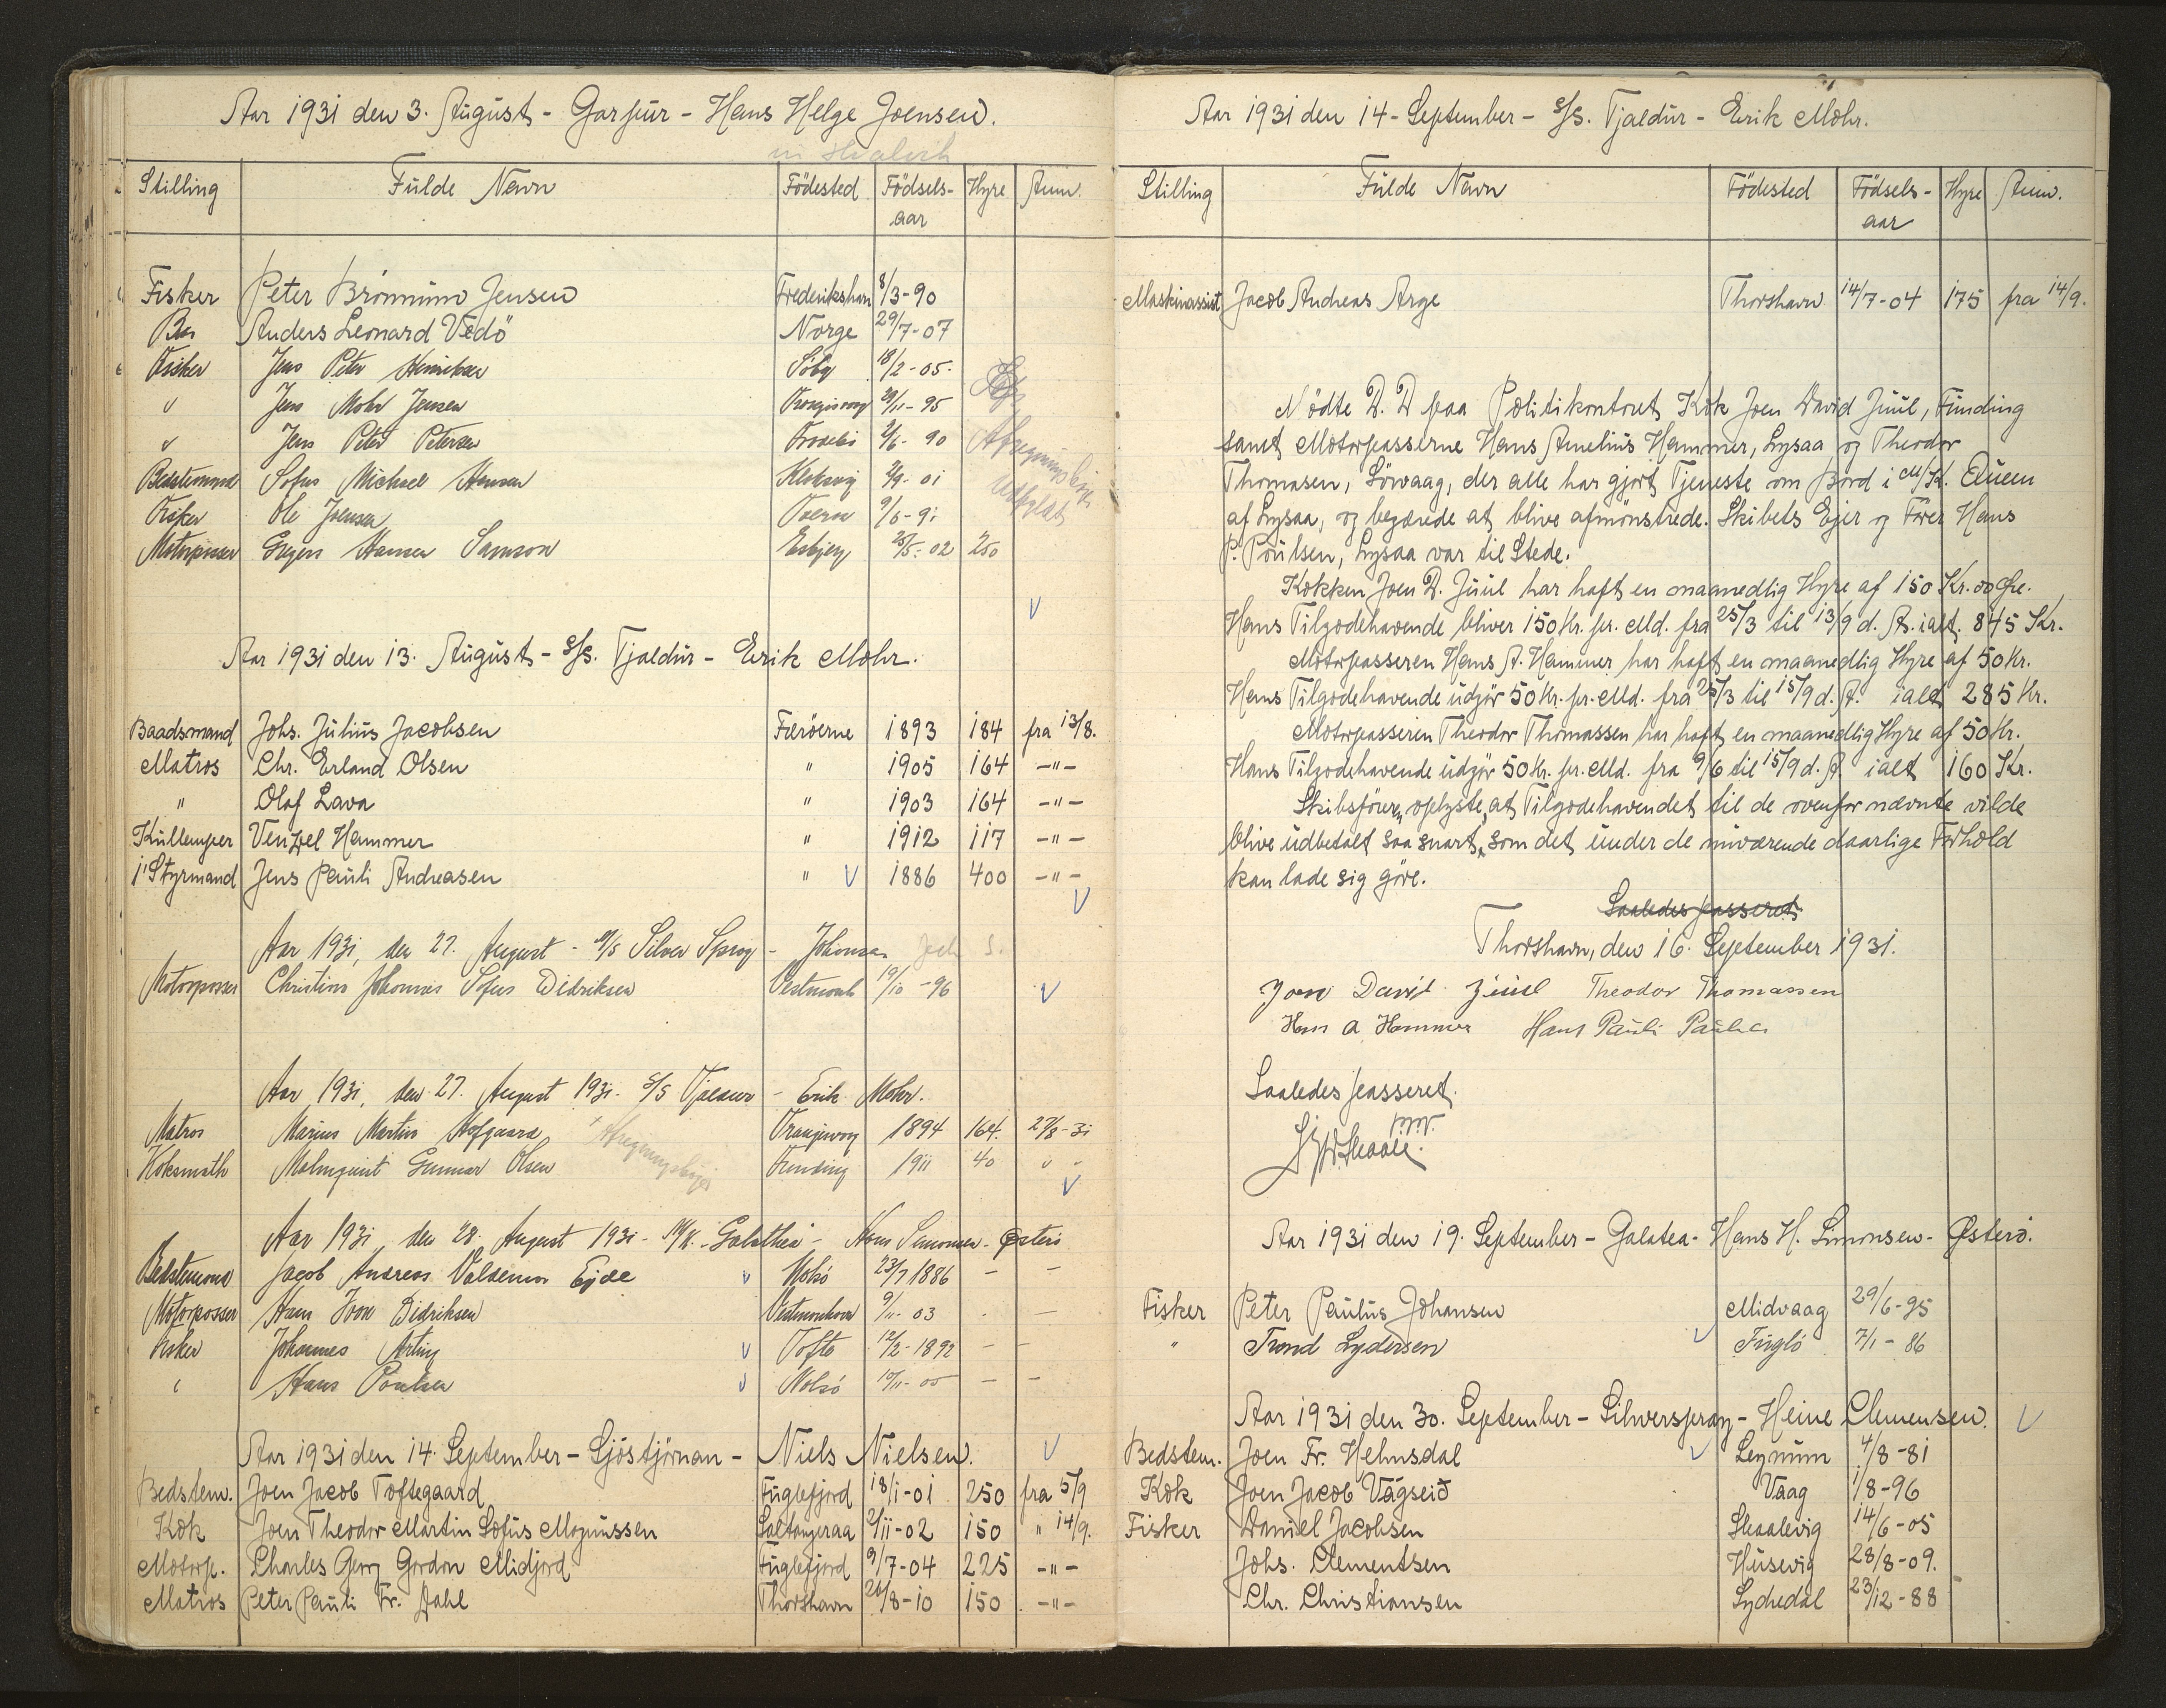 Aar 1931 den 3. August - Garpur - Hans Helge Joensen.
Stilling Fulde Navn Födested Födsels-aar Hyre Anm.
Fisker Peter Brönnum Jensen Frederikshavn 8/3-90
Bas Anders Leonard Vedö Norge 29/7-07
Fisker Jens Peter Henriksen 18/2-05
" Jens Mohr Jensen 95
" Jens Peter Petersen 90
Bedstemand Sofus Michael Hansen Klaksvig 01
Fisker Ole Joensen 91
Motorpasser Hansen Samson Esbjerg 25/5-02 250
Aar 1931 den 13. August - S/S. Tjaldur - Erik Mohr.
Baadsmand Johs. Julius Jacobsen Færöerne 1893 184 fra 13/8.
Matros Chr. Erland Olsen " 1905 164 -"-
" Olaf Lava " 1903 164 -"-
Kullemper Venzel Hammer " 1912 117 -"-
1' Styrmand Jens Pauli Andreasen " 1886 400 -"-
Aar 1931, den 27. August - Silver Spray - Johansen
Motorpasser Christian Johannes Sofus Didriksen Vestmanh 19/10-96
Aar 1931, den 27. August 1931 - S/S Tjaldur - Erik Mohr.
Matros Marius Martin Hofgaard Trangisvog 1894 164. 27/8-31
Koksmath Malmquist Gunnar Olsen Funding 1911 40 " -
Aar 1931 den 28. August 1931 - M/K. Galathea - Hans Simonsen - Österö
Bedstemand Jacob Andreas Valdemar Ejde Nolsö 23/7 1886 - -
Motorpasser Hans Joen Didriksen Vestmanhavn 9/11-03 - -
Fisker Johannes Arting Tofte 12/2-1892 - -
" Hans Poulsen Nolsö 10/11-00 - -
Aar 1931 den 14. September - Sjöstjörnan - Niels Nielsen.
Bedstem. Joen Jacob Toftegaard Fuglefjord 18/1-01 250 fra 5/9
Kok Joen Theodor Martin Sofus Magnussen Saltangeraa 2/11-02 150 " 14/9.
Motorp. Charles Georg Gordon Midjord Fuglefjord 9/7-04 225 -"-
Matros Peter Pauli Fr. Dahl Thorshavn 26/8-10 150 -"-
Aar 1931 den 14 - September - S/S. Tjaldur - Erik Mohr.
Stilling Fulde Navn Födested Födsels-aar Hyre Anm.
Maskinassist Jacob Andreas Arge Thorshavn 14/7-04 175 fra 14/9.
Mödte D. D paa Politikontoret Kok Joen David Juul, Funding
samt Motorpasserne Hans Amelius Hammer, Lysaa og Theodor
Thomasen, Sörvaag, der alle har gjort Tjeneste om Bord i M/K. Queen
af Lysaa, og begærede at blive afmönstrede. Skibets Ejer og Förer Hans
P. Poulsen, Lysaa var til Stede.
Kokken Joen D. Juul har haft en maanedlig Hyre af 150 Kr. 00 Öre.
Hans Tilgodehavende bliver 150 Kr. pr. Md. fra 25/3 til 13/9 d. A. ialt. 845 Kr.
Motorpasseren Hans A. Hammer har haft en maanedlig Hyre af 50 Kr.
Hans Tilgodehavende udgör 50 Kr. pr. Md. fra 25/3 til 15/9 d. A. ialt 285 Kr.
Motorpasseren Theodor Thomassen har haft en maanedlig Hyre af 50 Kr.
Hans Tilgodehavende udgör 50 Kr. pr. Md. fra 9/6 til 15/9 d. A. ialt 160 Kr.
Skibsföreren oplyste, at Tilgodehavendet til de ovenfor nævnte vilde
blive udbetalt saa snart, som det under de nuværende daarlige Forhold
kan lade sig göre.
Saaledes passeret
Thorshavn, den 16. September 1931.
Joen David Juul Theodor Thomassen
Hans A. Hammer Hans Pauli Paulsen
Saaledes passeret.
Aar 1931 den 19. September - Galatea - Hans H. Simonsen - Österö.
Fisker Peter Paulus Johansen Midvaag 29/6-95
" Trond Lydersen Fuglö 7/1-86
Aar 1931 den 30. September - Silverspray - Heine Clemensen.
Bedstem. Joen Fr. Helmsdal Leynum 4/8-81
Kok Joen Jacob Vágseið Vaag 1/8-96
Fisker Daniel Jacobsen Skaalevig 14/6-05
Johs. Clementsen Husevig 28/8-09.
Chr. Christiansen 23/12-88